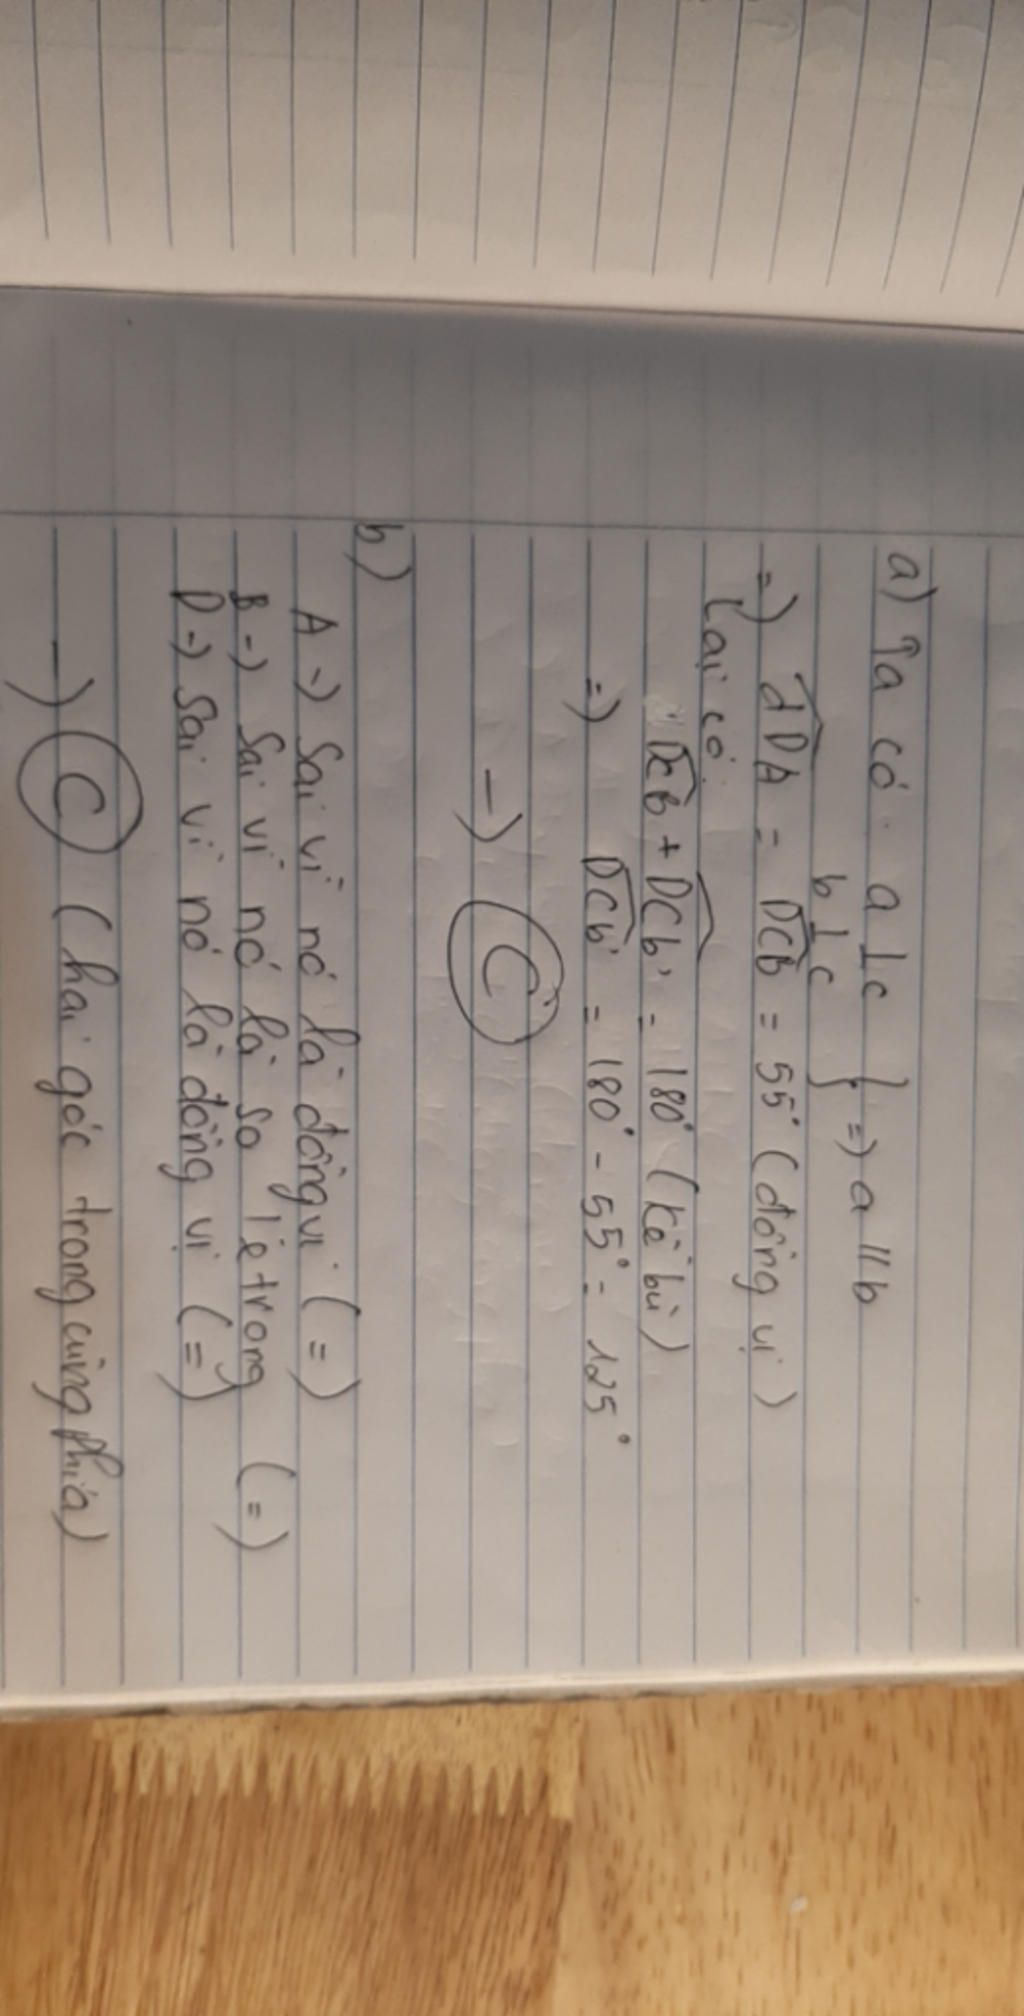 a) Ta có: a ⊥ c
b ⊥ c } => a // b
=> dDA = DCB = 55° (đồng vị)
Lại có:
DCB + DCb' = 180° (kề bù)
=> DCb' = 180° - 55° = 125°
-> C
b)
A -> Sai vì nó là đồng vị (=)
B -> Sai vì nó là so le trong (=)
D -> Sai vì nó là đồng vị (=)
-> C (hai góc trong cùng phía)